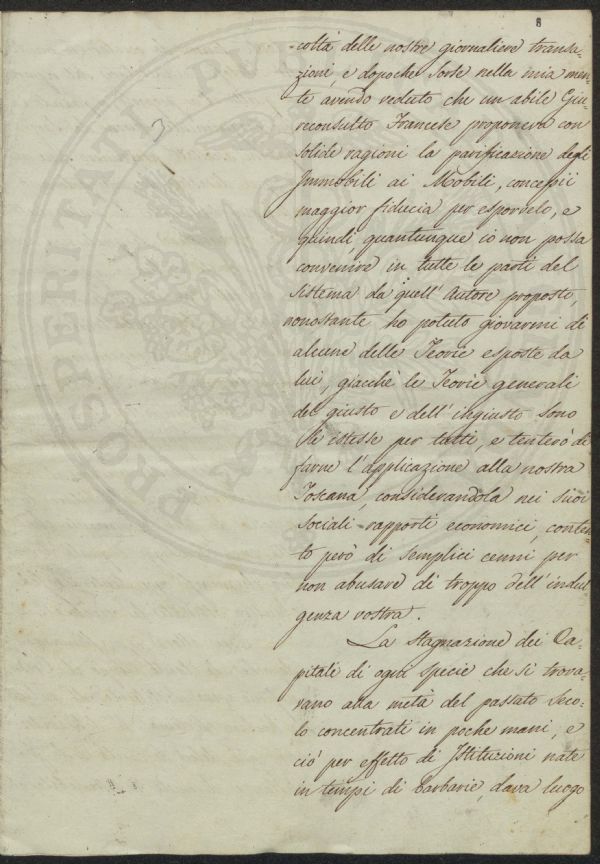 8
3
coltà delle nostre giornaliere transa-
zioni, e dopoche sorse nella mia men-
te avendo veduto che un abile Giu-
reconsulto Francese proponeva con
solide ragioni la parificazione degli
Immobili ai Mobili, concepii
maggior fiducia per esporvelo, e
quindi, quantunque io non possa
convenire in tutte le parti del
sistema da quell' Autore proposto,
nonostante ho potuto giovarmi di
alcune delle Teorie esposte da
lui, giacchè le Teorie generali
del giusto e dell' ingiusto sono
le istesse per tutti, e tenterò di
farne l' applicazione alla nostra
Toscana, considerandola nei suoi
sociali rapporti economici, conten-
to però di semplici cenni per
non abusare di troppo dell' indul-
genza vostra.
La stagnazione dei Ca-
pitali di ogni specie che si trova-
vano alla metà del passato Seco-
lo concentrati in poche mani, e
ciò per effetto di Istituzioni nate
in tempi di barbarie, dava luogo
PROSPERITATI PUB